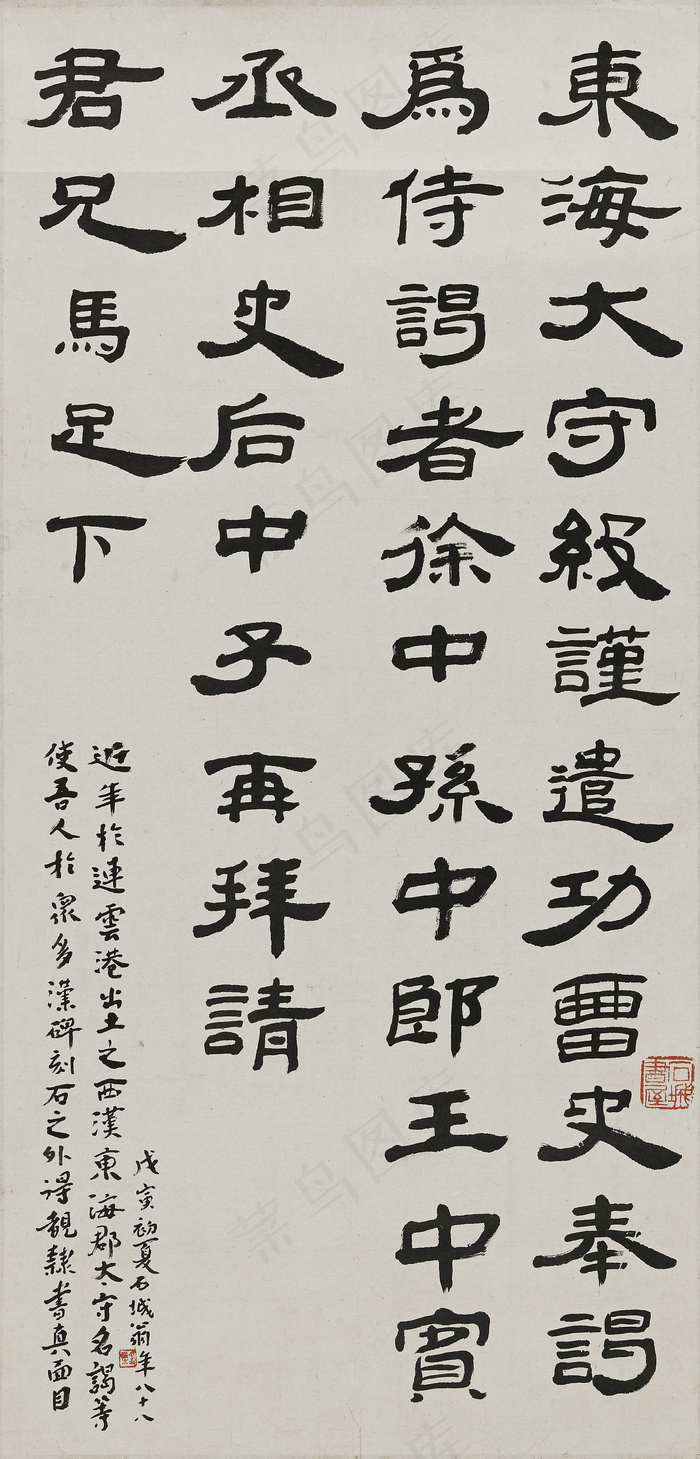 東海大守級謹遣功曹史奉謁
為侍謁者徐中孫中郎王中賓
丞相史后中子再拜請
君兄馬足下
近年於連雲港出土之西漢東海郡大守名謁等
使吾人於眾多漢碑刻石之外得覩隸書真面目
戊寅初夏石城翁年八十八
石城書屋
菜鸟图库